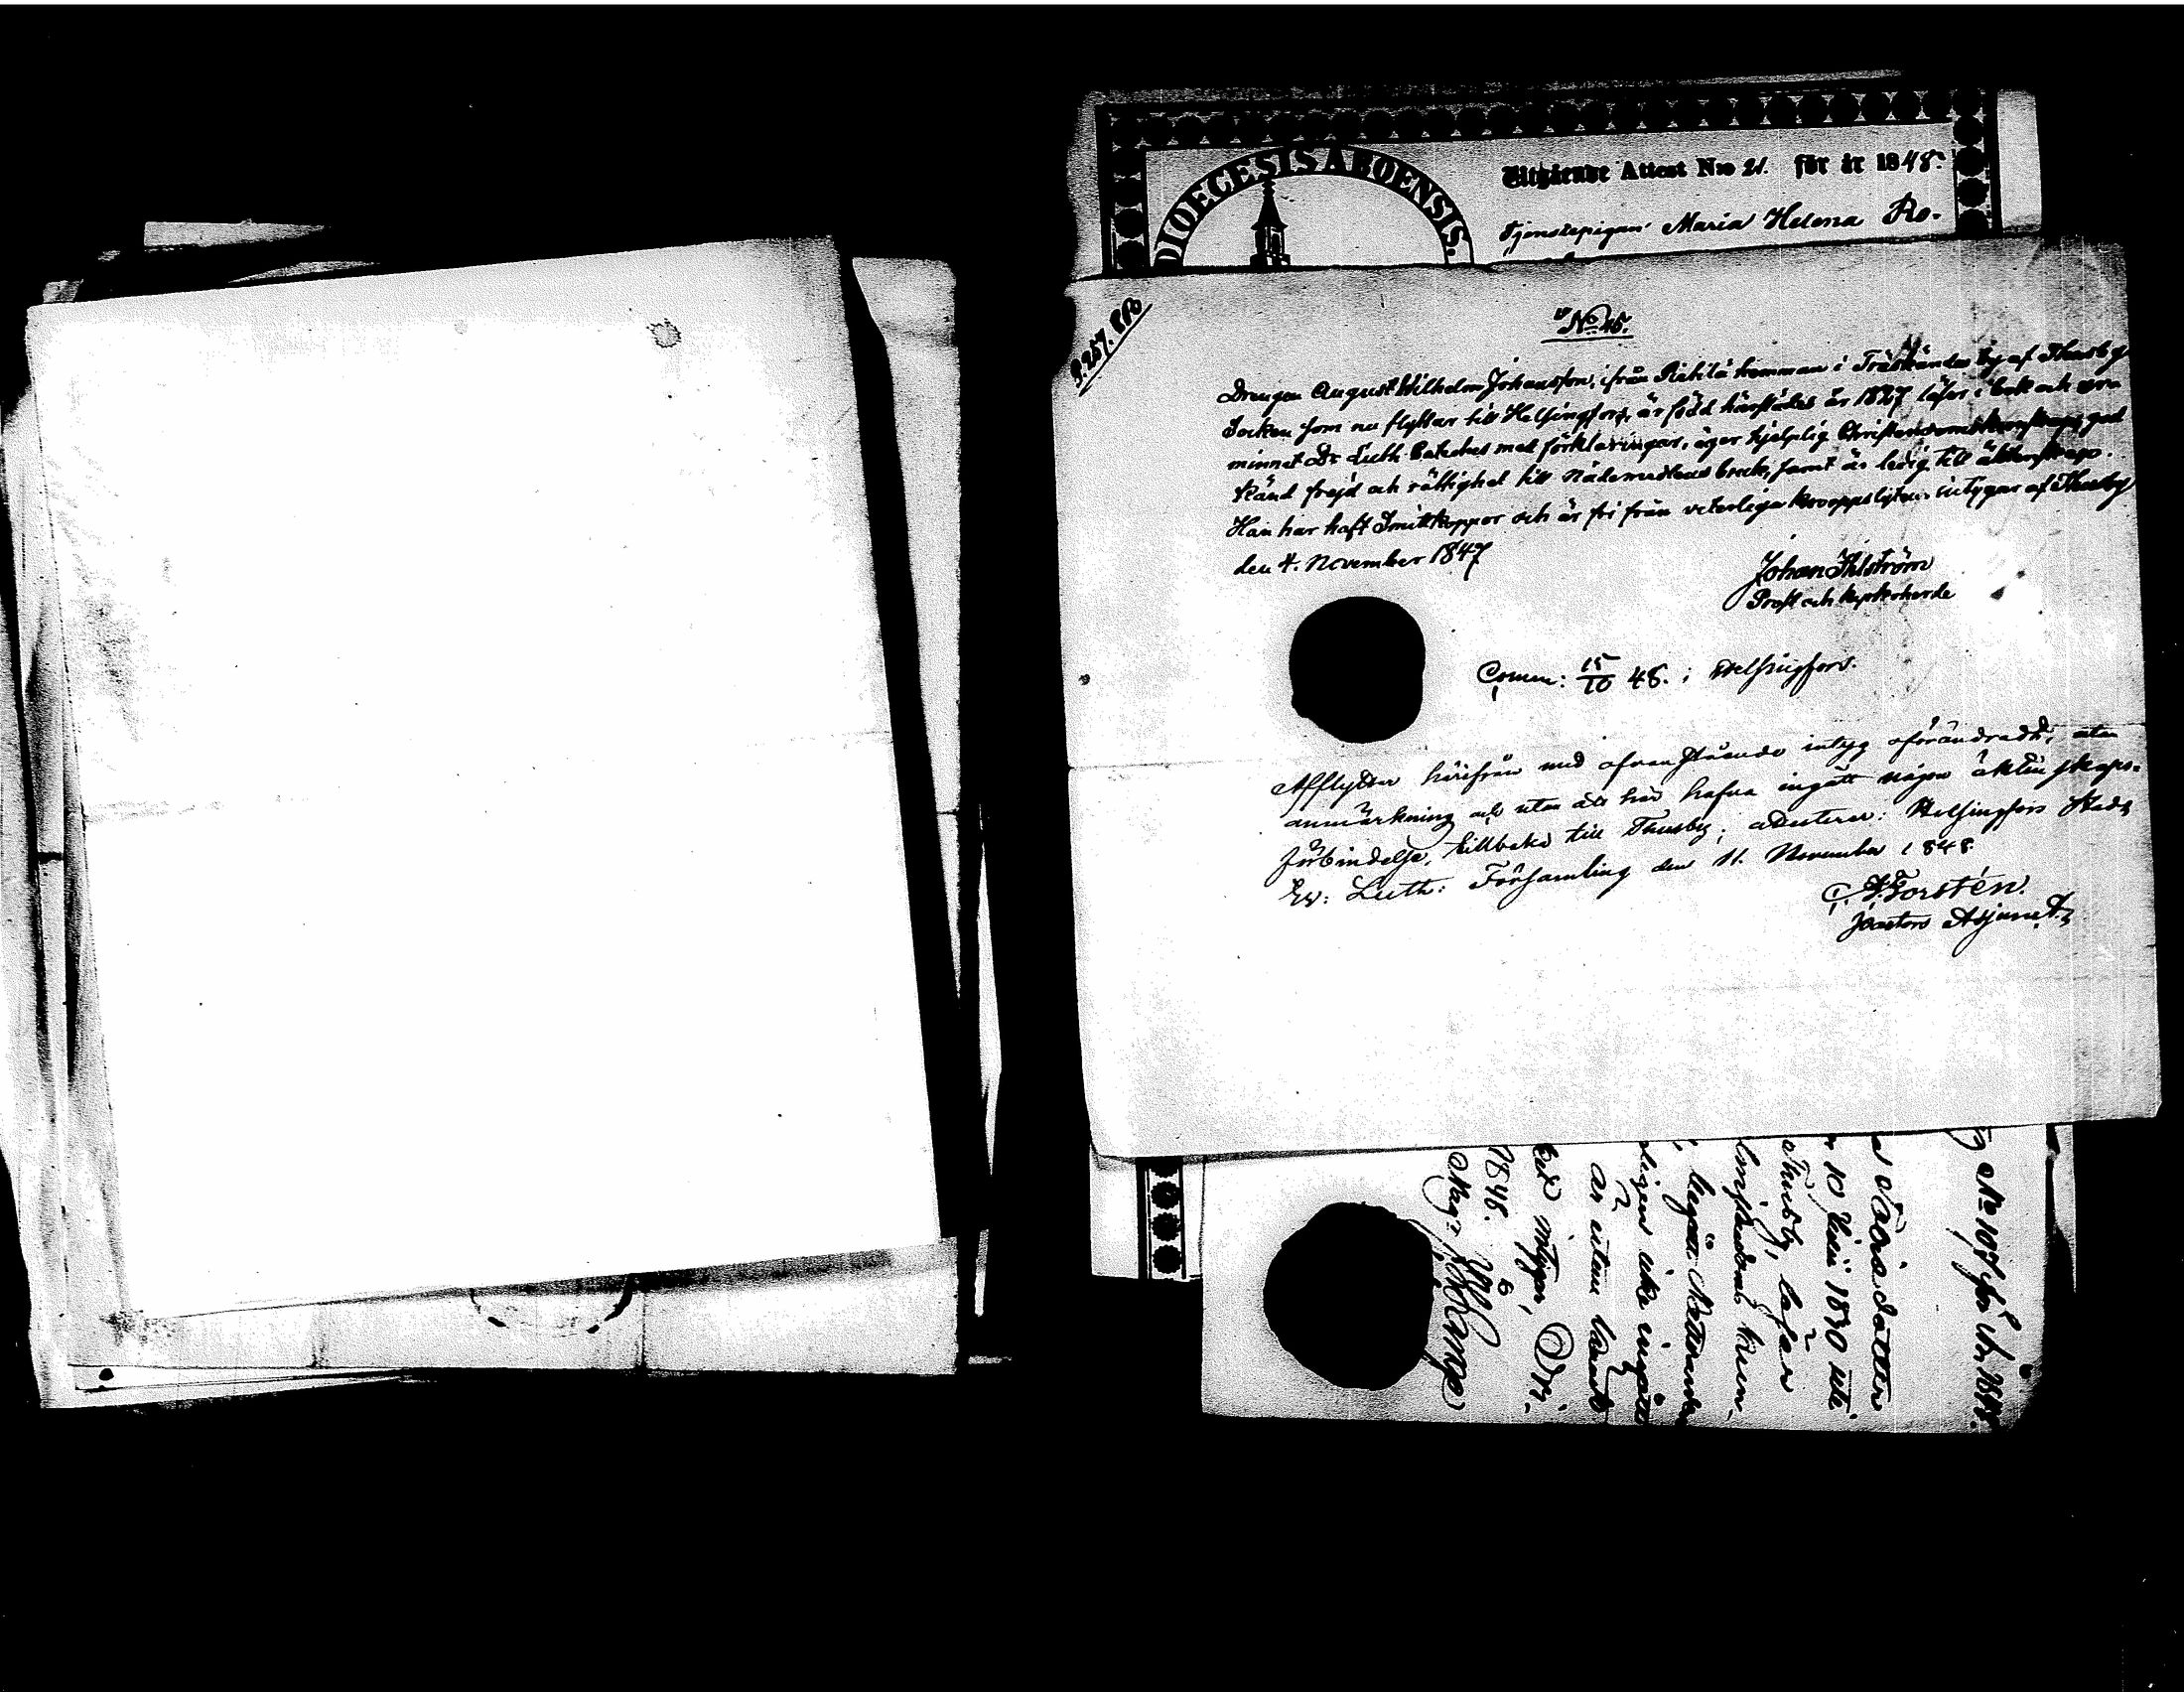 DIOECESIS ABOENSIS.
Utgående Attest N:o 21. för år 1848.
Tjenstepigan Maria Helena Ro-
P. 257.
No 45.
Drengen August Wilhelm Johansson, ifrån Pietilä hemman i Träskända by af Thusby
Socken som nu flyttar till Helsingfors, är född härstädes år 1827 läser i bok och
minnet Dr Luth. Cateches med förklaringar, äger hjelplig Christendomskunskap, god
känd frejd och rättighet till Nådemedlens bruk, samt är ledig till äktenskap.
Han har haft Smittkoppor och är fri från veterliga kroppslyten. intygar af Thusby
den 4. November 1847
Johan Ihlström
Prost och Kyrkoherde
Comm: 15/10 48. i Helsingfors.
Afflyttar härifrån med ofvanstående intyg oförändradt, utan
anmärkning och utan att här hafva ingått någon äktenskaps-
förbindelse, tillbaka till Thusby; attesterar: Helsingfors Stads
Ev: Luth: Församling den 11. November 1848
Forstén.
Pastors Adjunct.
No 107 för år 1848.
10 Junii 1830
Thusby, läser
begå Nattvarden
icke ingått
är utan
intygar,
1848.